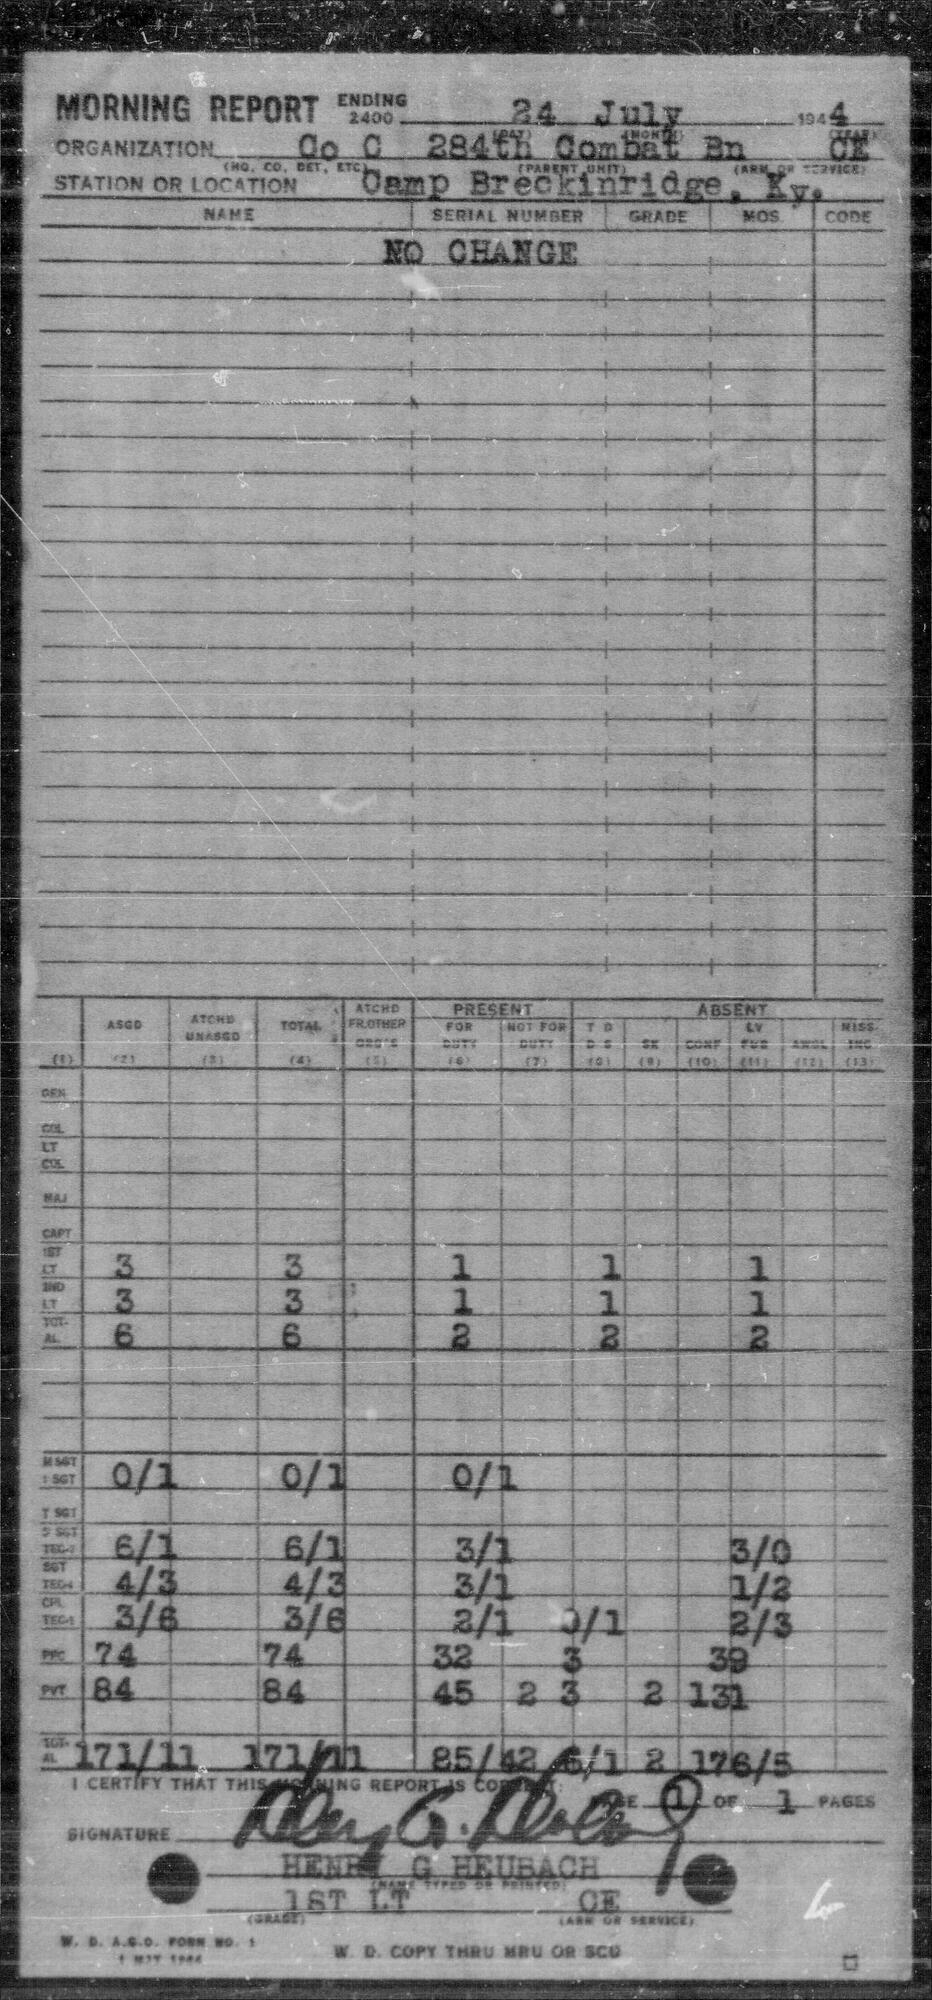 MORNING REPORT ENDING 2400 24 July 1944
ORGANIZATION Co C 284th Combat Bn CE
(HQ, CO, DET, ETC) (DAY) (PARENT UNIT) (MONTH) (ARM OR SERVICE) (YEAR)
STATION OR LOCATION Camp Breckinridge, Ky.
NAME SERIAL NUMBER GRADE MOS CODE
NO CHANGE
ATCHD PRESENT ABSENT
ASGD ATCHD UNASGD TOTAL FR.OTHER ORG'S FOR DUTY NOT FOR DUTY T D D S SK CONF LV FUR AWOL MISS. INC
(1) (2) (3) (4) (5) (6) (7) (8) (9) (10) (11) (12) (13)
GEN
COL
LT COL
MAJ
CAPT
1ST LT 3 3 1 1 1
2ND LT 3 3 1 1 1
TOT-AL 6 6 2 2 2
M SGT
1 SGT 0/1 0/1 0/1
T SGT
S SGT
TEC-3 6/1 6/1 3/1 3/0
SGT
TEC4 4/3 4/3 3/1 1/2
CPL
TEC5 3/6 3/6 2/1 0/1 2/3
PFC 74 74 32 3 39
PVT 84 84 45 2 3 2 131
TOT-AL 171/11 171/11 85/42 6/1 2 176/5
I CERTIFY THAT THIS MORNING REPORT IS CORRECT:
PAGE 1 OF 1 PAGES
SIGNATURE
HENRY G HEUBACH
(NAME TYPED OR PRINTED)
1ST LT CE
(GRADE) (ARM OR SERVICE)
W. D. A.G.O. FORM NO. 1
W. D. COPY THRU MRU OR SCU